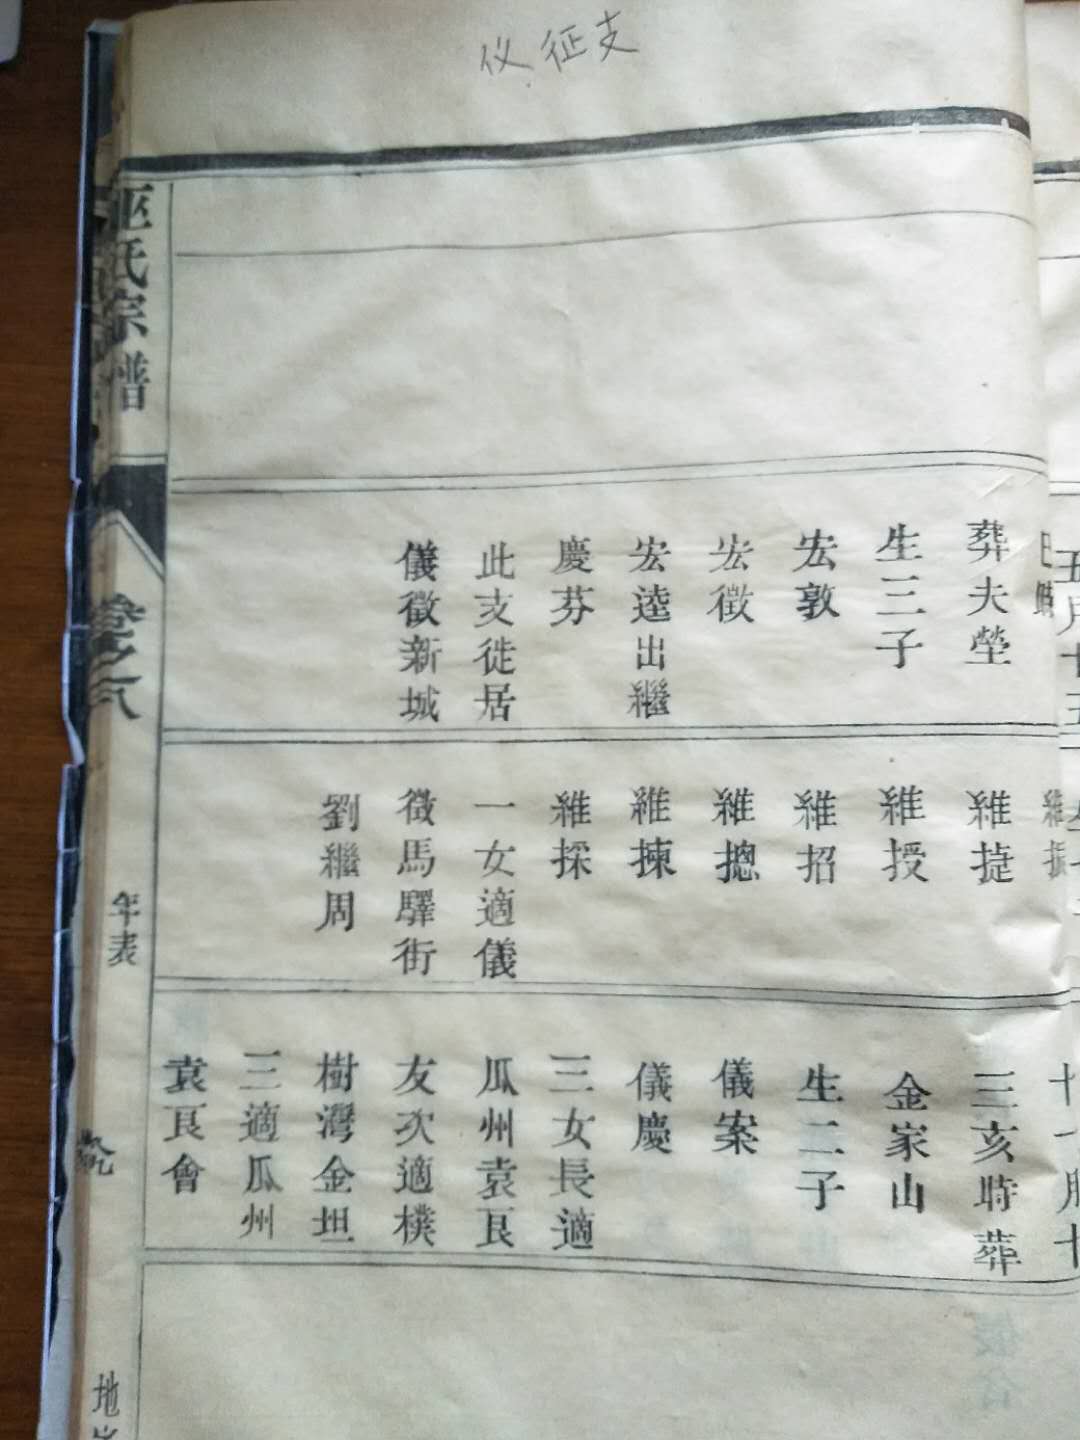 仪征支
葬夫塋
生三子
宏敦
宏徴
宏逵出繼
慶芬
此支徙居
儀徵新城
維捷
維授
維招
維摠
維揀
維採
一女適儀
徵馬驛街
劉繼周
三亥時葬
金家山
生二子
儀案
儀慶
三女長適
瓜州袁艮
友次適樸
樹灣金坦
三適瓜州
袁艮會
巫氏宗譜
卷之八
年表